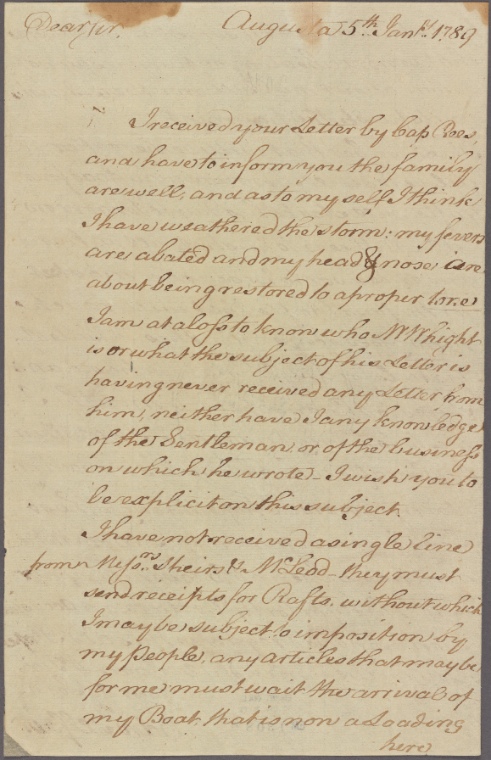 Dear Sir. Augusta 5th. Jany. 1789
I received your Letter by Cap Rees,
and have to inform you the family
are well, and as to my self I think
I have weathered the storm: my fevers
are abated and my head & nose are
about being restored to a proper tone
I am at a loss to know who Mr Whight
is or what the subject of his Letter is
having never received any Letter from
him, neither have I any knowledge
of the Gentleman, or of the business
on which he wrote - I wish you to
be explicit on this subject.
I have not received a single line
from Messrs. Sheirs & McLeod - they must
send receipts for Rafts. without which
I may be subject to imposition by
my People, any articles that may be
for me must wait the arrival of
my Boat. that is now a Loading
here